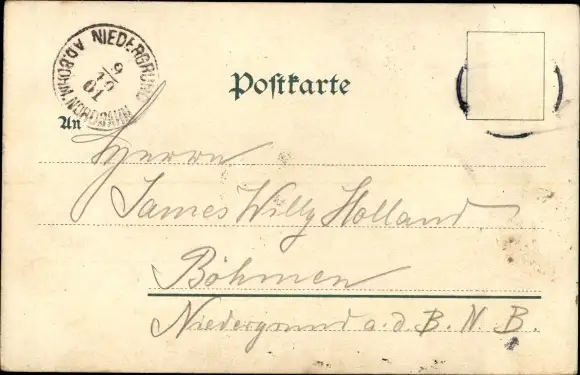 NIEDERGRUND A.D. BÖHM. NORDBAHN
9
10
01
Postkarte
An
Herrn
James Willy Holland
Böhmen
Niedergrund a. d. B. N. B.